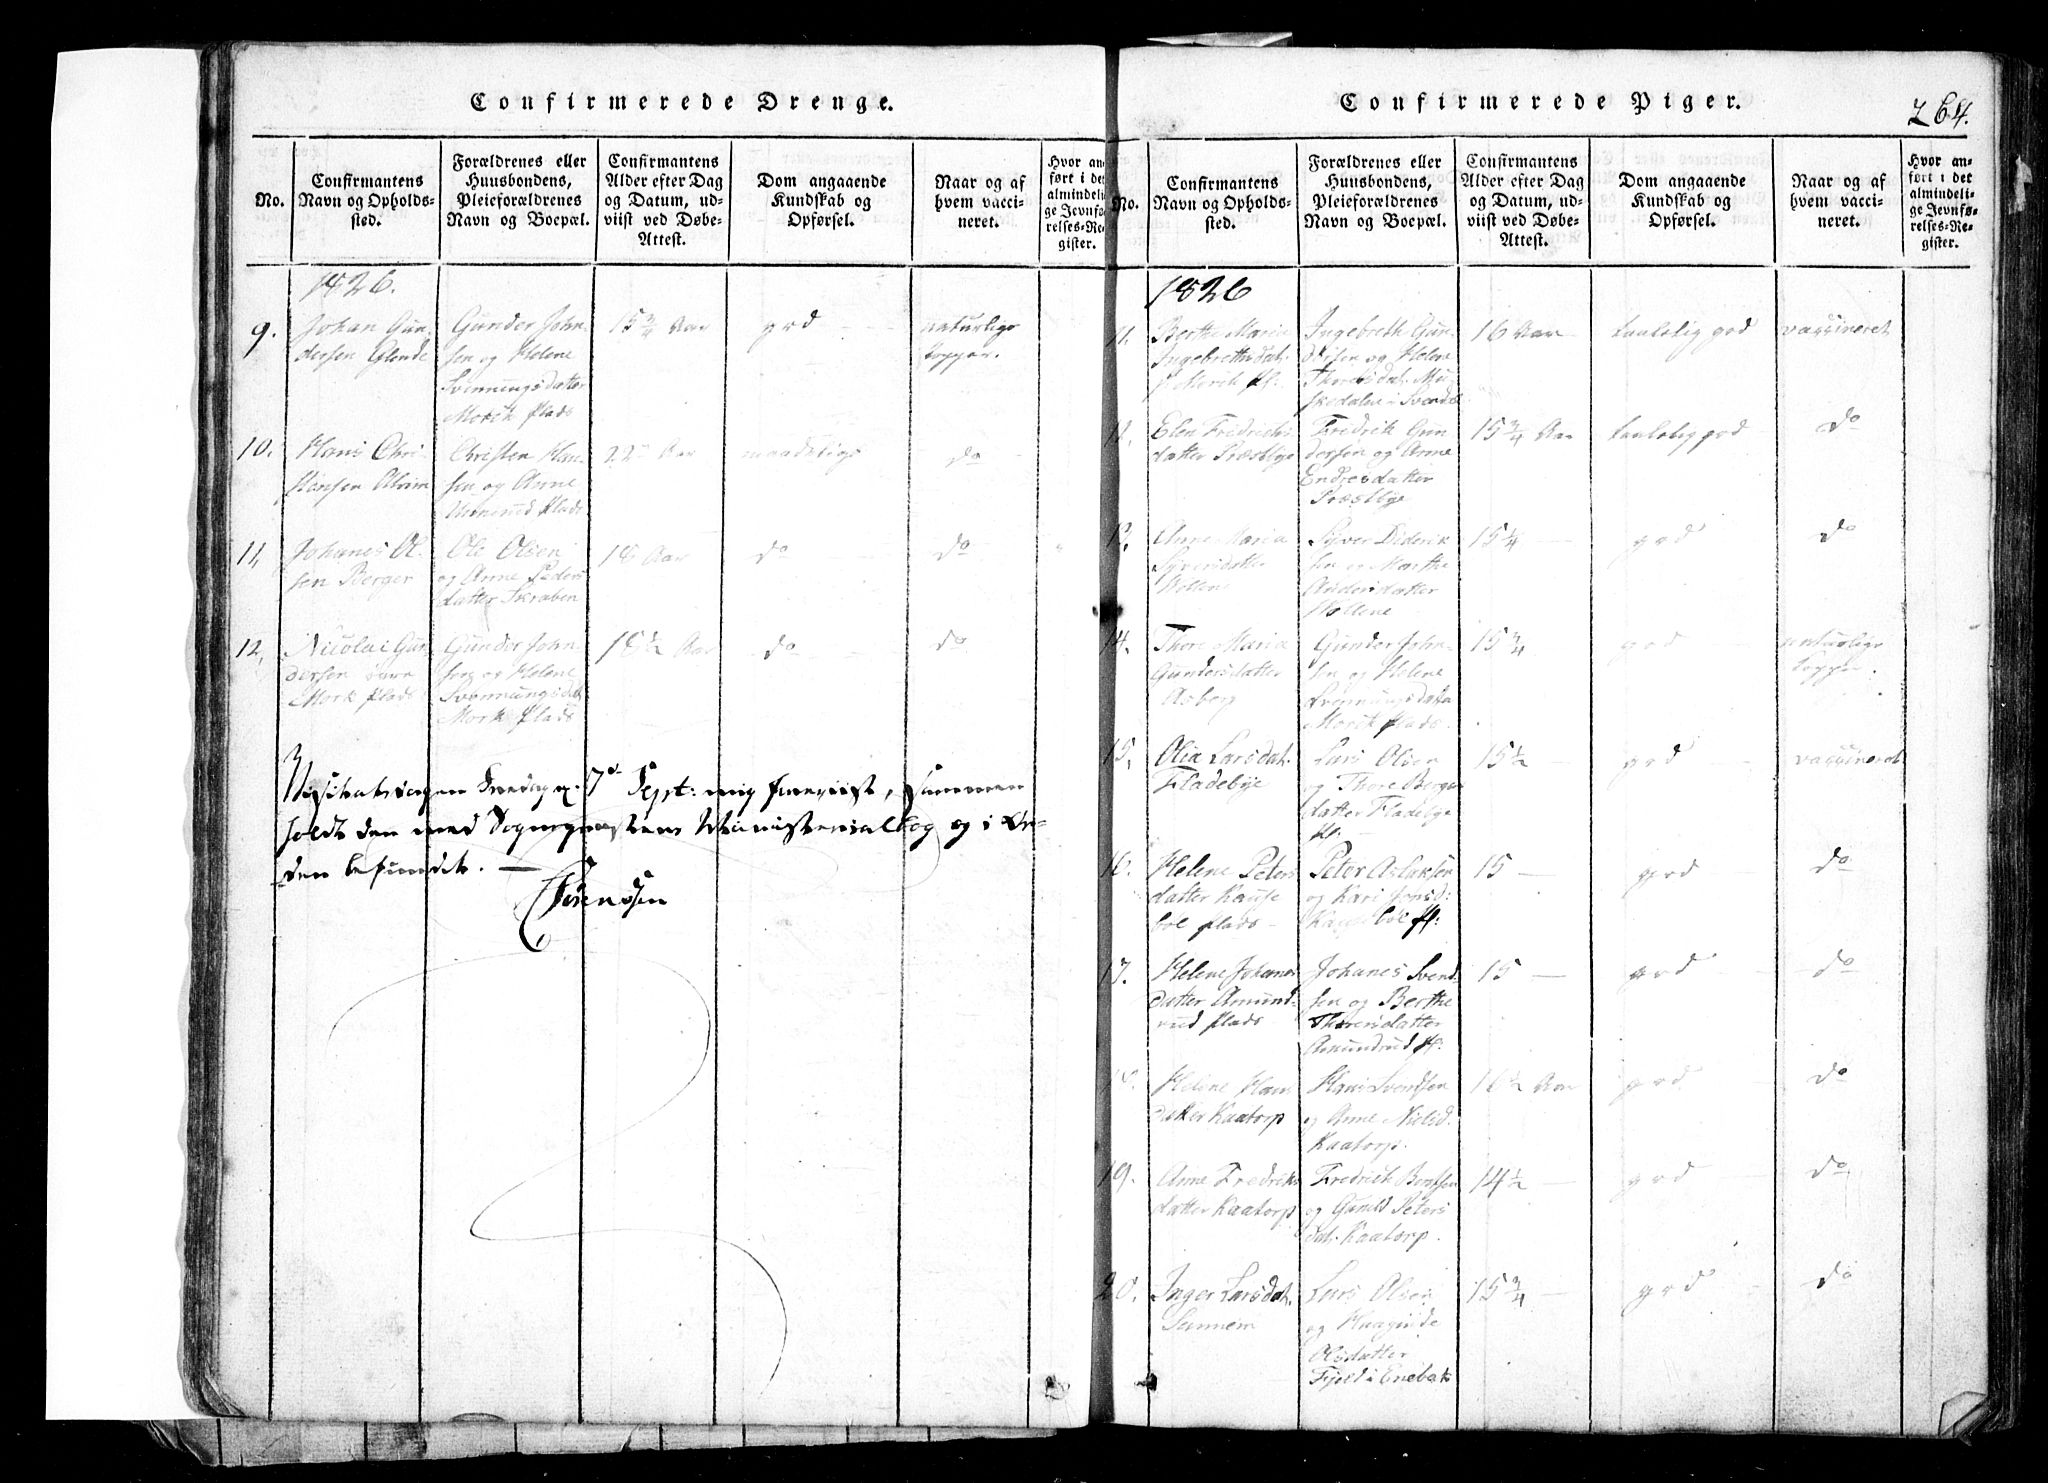 Confirmerede Drenge.
No.
Confirmantens
Navn og Opholds-
sted.
Forældrenes eller
Huusbondens,
Pleieforældrenes
Navn og Boepæl.
Confirmantens
Alder efter Dag
og Datum, ud-
viist ved Døbe-
Attest.
Dom angaaende
Kundskab og
Opførsel.
Naar og af
hvem vacci-
neret.
Hvor an-
ført i det
almindeli-
ge Jevnfø-
relses-Re-
gister.
1826.
9.
Johan Gun-
dersen
Gunder John-
sen og Helene
Svennungsdatter
Mork Plads
15 3/4 Aar
god
naturlige
Kopper.
10.
Hans Chri-
stensen
Christen Han-
sen og Anne
Plads
22 Aar
maadelige
do
11.
Johanes Ol-
sen Berger
Ole Olsen
og Anne Peders
datter Skraben
18 Aar
do
do
12.
Nicolai Gun-
dersen
Mork Plads
Gunder John-
sen og Helene
Svennungsdat
Mork Plads
18 1/2 Aar
do
do
Sept: mig foreviist, sammen
holdt den med Sognepræstens Ministerialbog og i Or-
den befundet.
Sørensen
Confirmerede Piger.
264.
No.
Confirmantens
Navn og Opholds-
sted.
Forældrenes eller
Huusbondens,
Pleieforældrenes
Navn og Boepæl.
Confirmantens
Alder efter Dag
og Datum, ud-
viist ved Døbe-
Attest.
Dom angaaende
Kundskab og
Opførsel.
Naar og af
hvem vacci-
neret.
Hvor an-
ført i det
almindeli-
ge Jevnfø-
relses-Re-
gister.
1826
11.
Berthe Maria
Ingebrethsdat.
Ingebreth Gun-
dersen og Helene
Thoresdat. Mu-
skedalen i
16 Aar
taalelig god
vaccineret
Elen Fredriks
datter Præstbye
Fredrik Gun
dersen og Anne
Endresdatter
Præstbye
15 3/4 Aar
taalelig god
do
13.
Anne Maria
Syversdatter
Wollene
Syver Diderik
sen og Marthe
Andersdatter
Wollene
15 1/4
god
do
14.
Thore Maria
Gundersdatter
Asberg
Gunder John-
sen og Helene
Svennungsdatter
Mork Plads.
15 3/4
god
naturlige
Kopper.
15.
Olia Larsdat.
Fladebye
Lars Olsen
og Thore Berger
datter Fladebye
Pl:
15 1/2
god
vaccineret
16.
Helene Peters
datter Kause
bøl Plads
Peter Aslaksen
og Kari Jonsd:
Pl:
15
god
do
17.
Helene Johanes
datter Amund-
rud Plads
Johanes Svend
sen og Berthe
Thoresdatter
Amundrud Pl:
15
god
do
18.
Helene Hans
datter Kaatorp
Hans Svendsen
og Anne Nielsd.
Kaatorp.
16 1/2 Aar
god
do
19.
Anne Fredriks
datter Kaatorp
Fredrik Berntsen
og Gunild Peters
dat. Kaatorp.
14 1/2
god
do
20.
Inger Larsdat.
Sannem
Lars Olsen
og
Olsdatter
Fjeld i Enebak
15 3/4
god
do